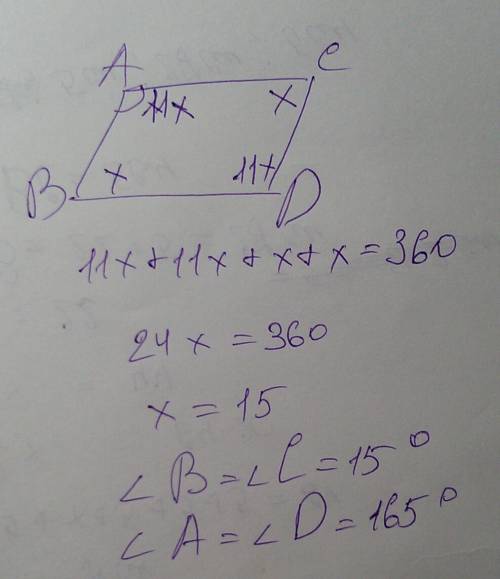 A C
11x x
x 11x
B D
11x + 11x + x + x = 360
24x = 360
x = 15
∠B = ∠C = 15°
∠A = ∠D = 165°